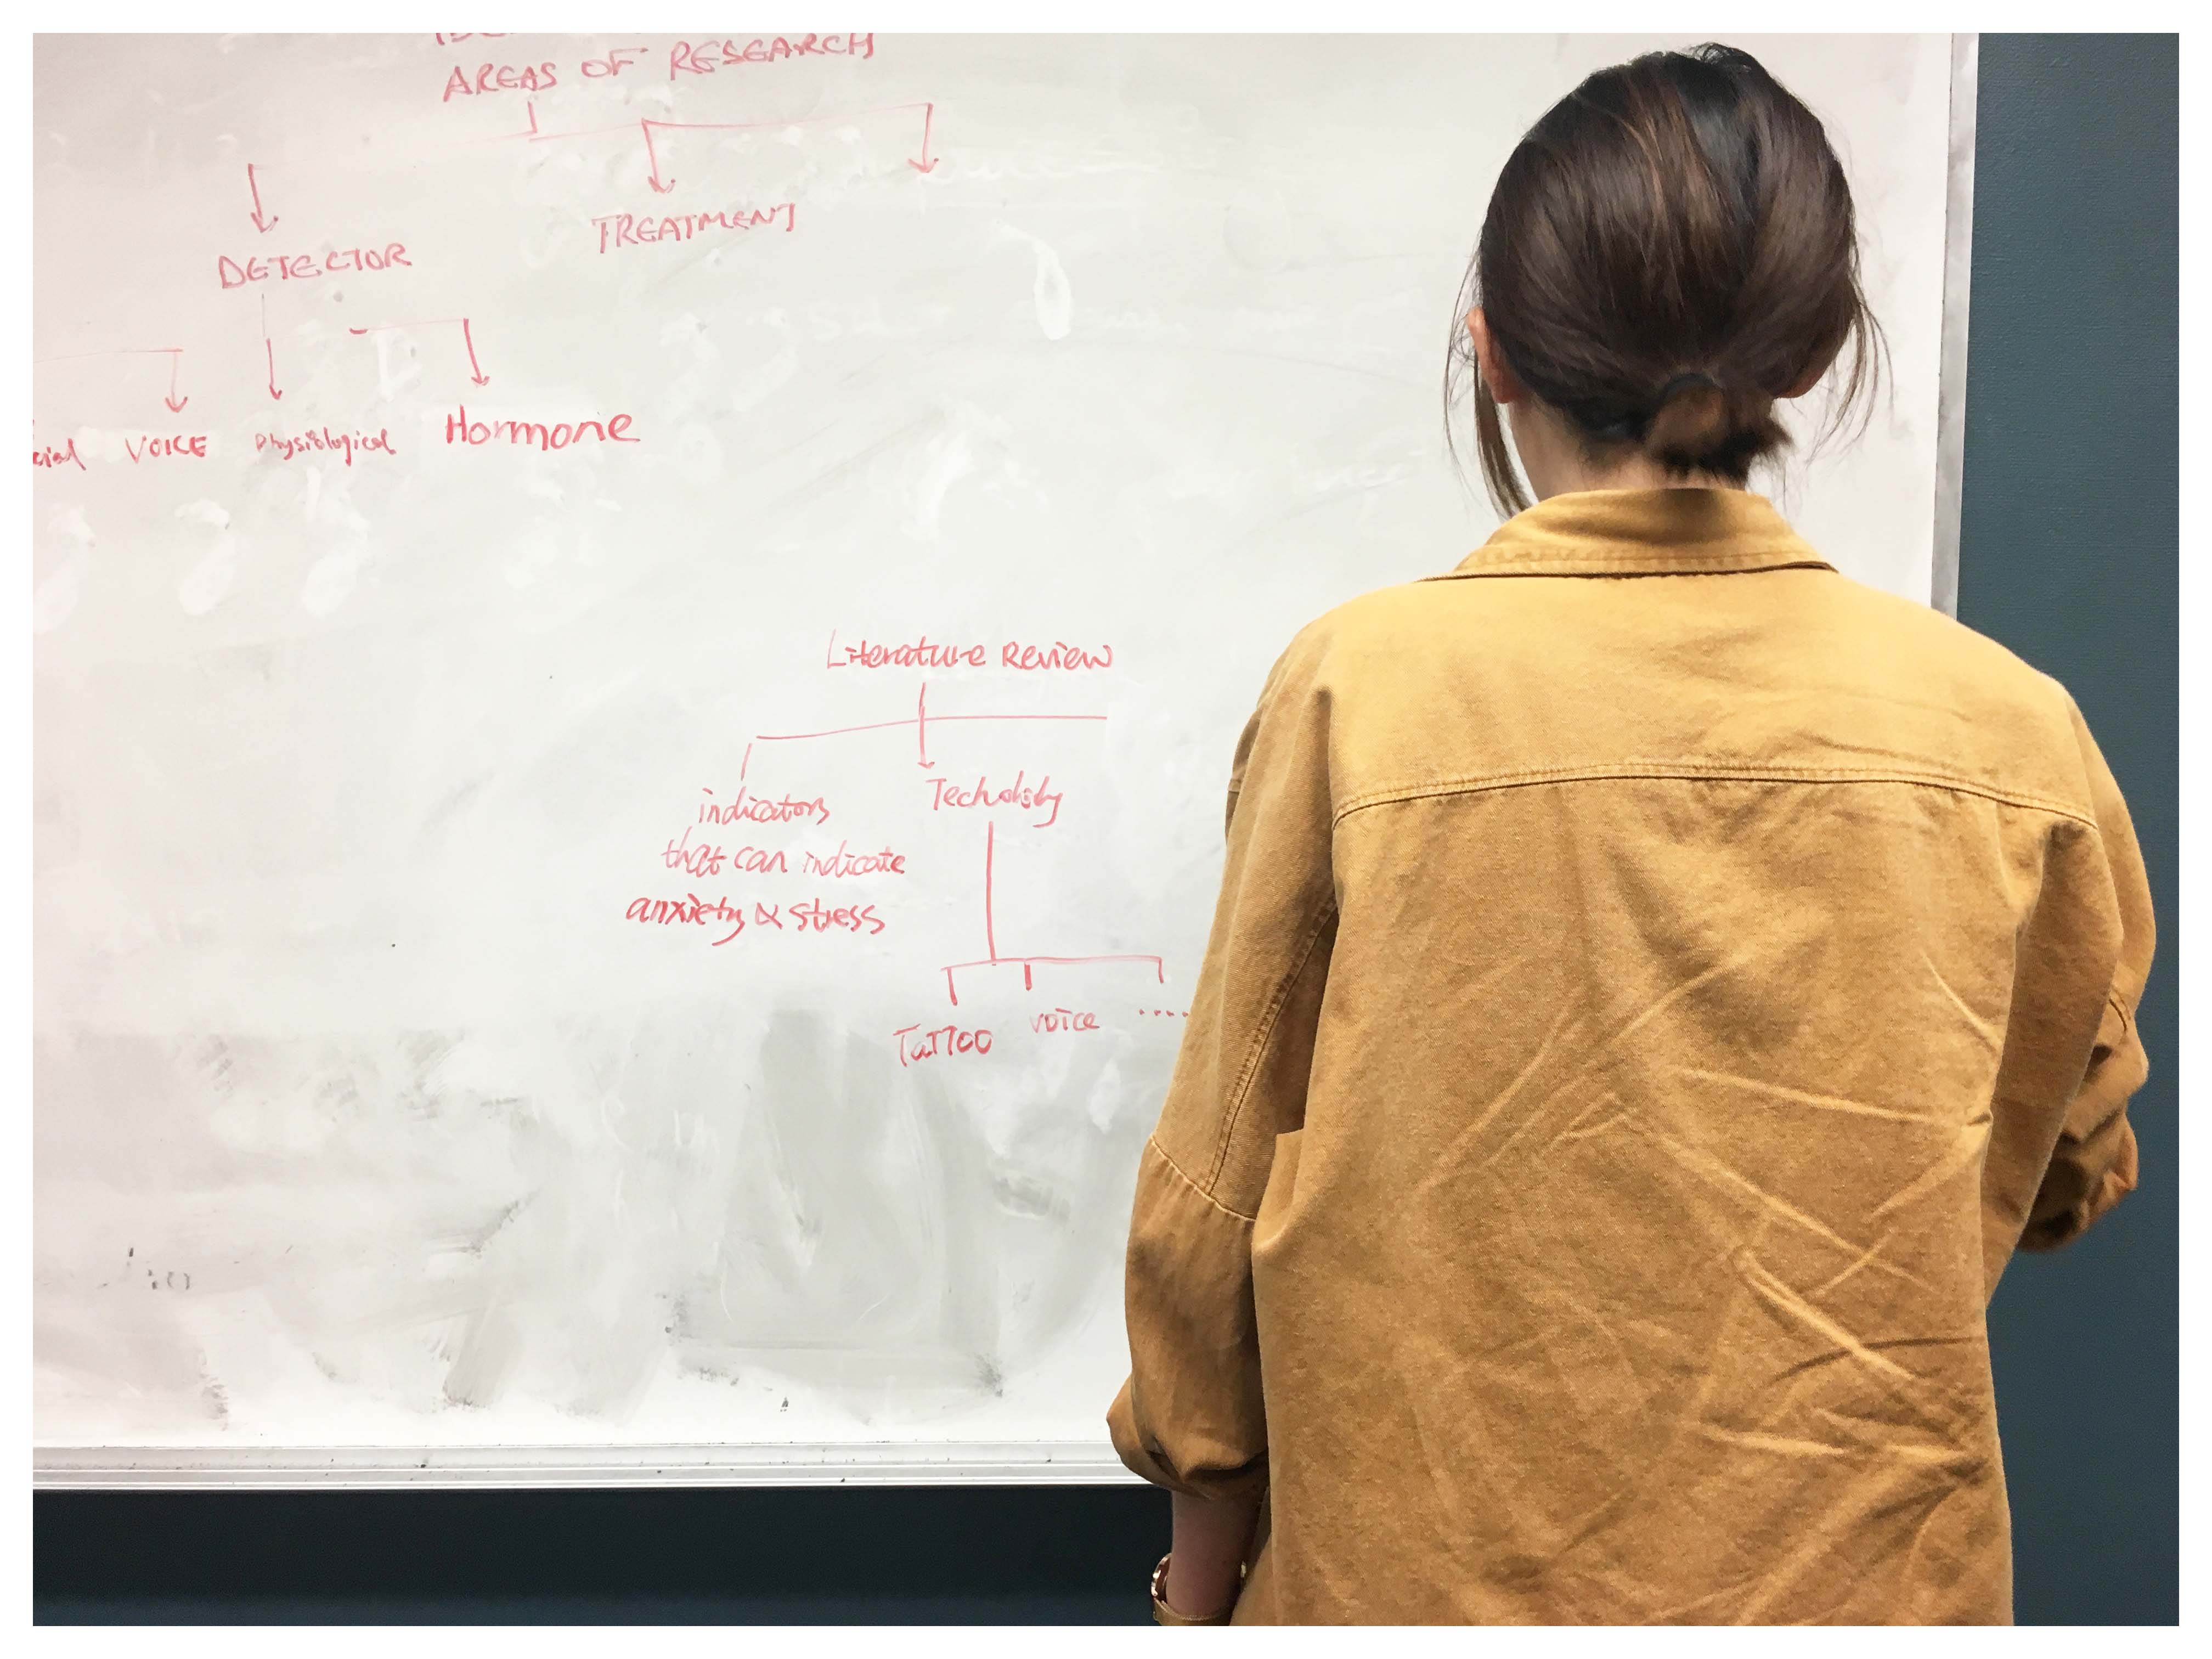 AREAS OF RESEARCH
DETECTOR
TREATMENT
VOICE
Physiological
Hormone
Literature Review
indicators
that can indicate
anxiety & stress
Techology
Tattoo
voice
.....